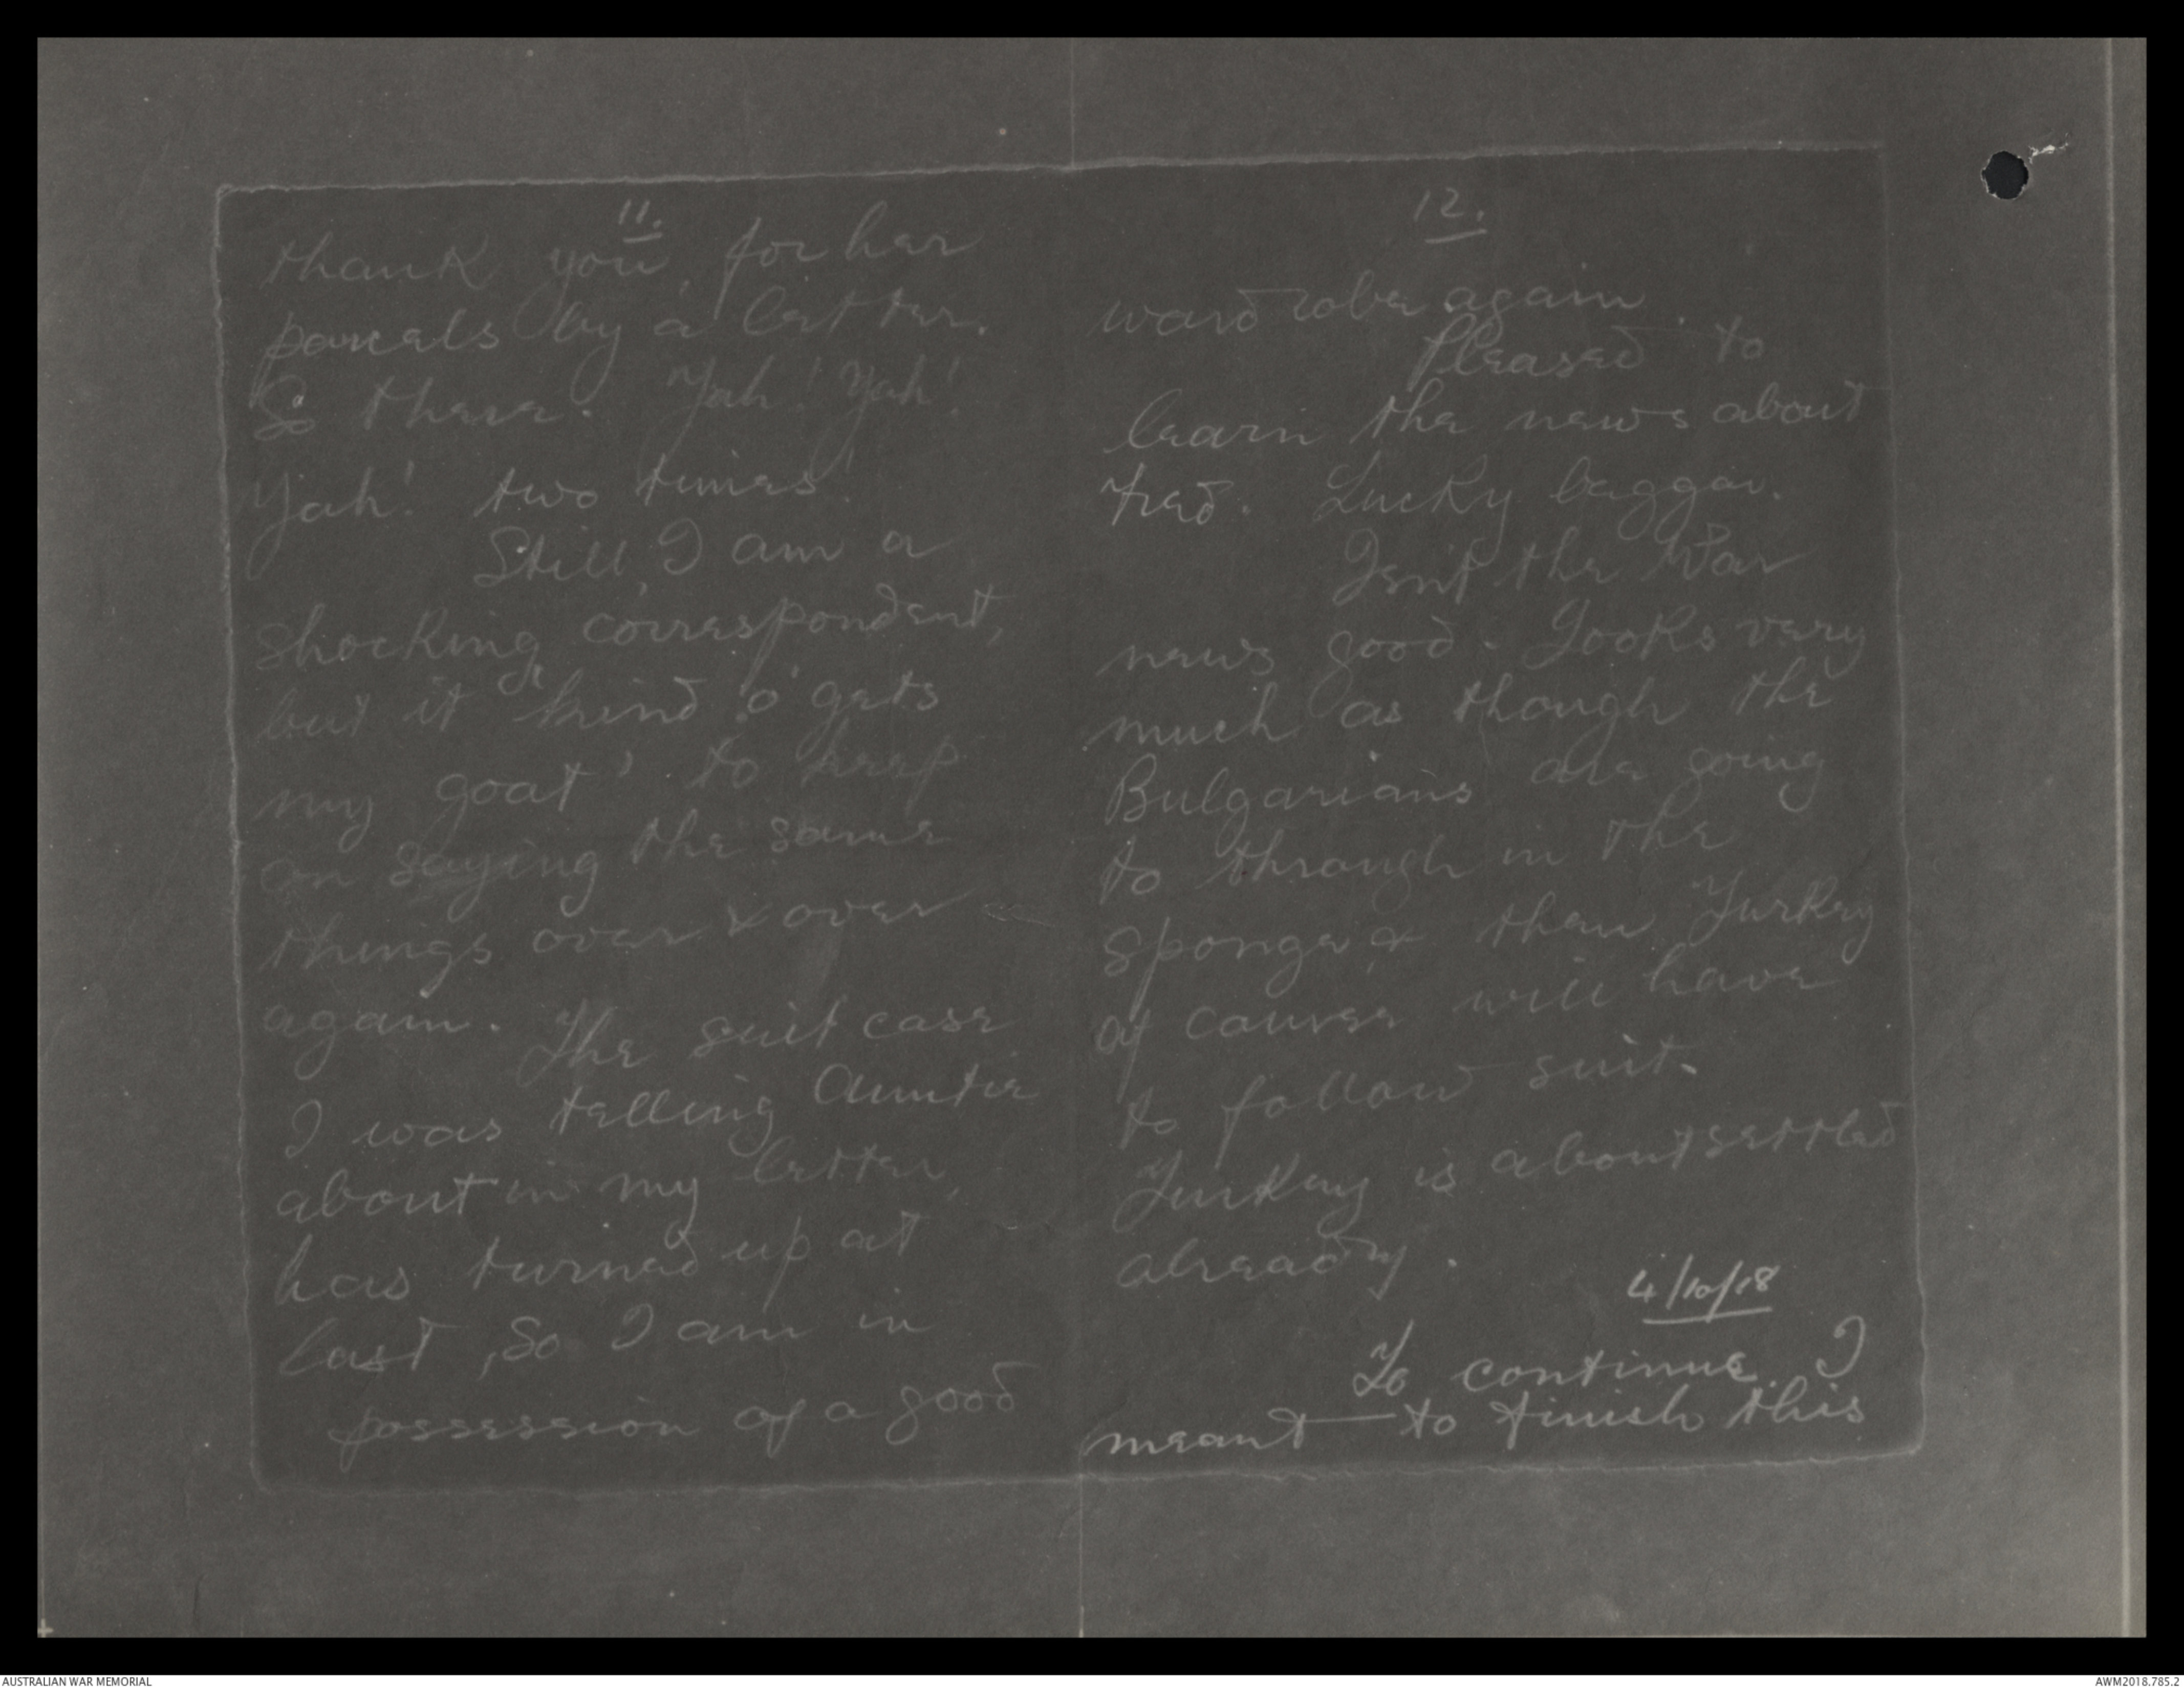 11.
thank you, for her
parcels by a letter.
So there. Yah! Yah!
Yah! two times!
Still, I am a
shocking correspondent,
but it "kind o' gets
my goat' to keep
on saying the same
things over & over
again. The suit case
I was telling Auntie
about in my letter,
has turned up at
last, So I am in
possession of a good
12.
wardrobe again.
Pleased to
learn the news about
Fred. Lucky beggar.
Isn't the War
news good. Looks very
much as though the
Bulgarians are going
to through in the
sponge & then Turkey
of course will have
to follow suit.
Turkey is about settled
already.
4/10/18
To continue. I
meant to finish this
AUSTRALIAN WAR MEMORIAL
AWM2018.785.2